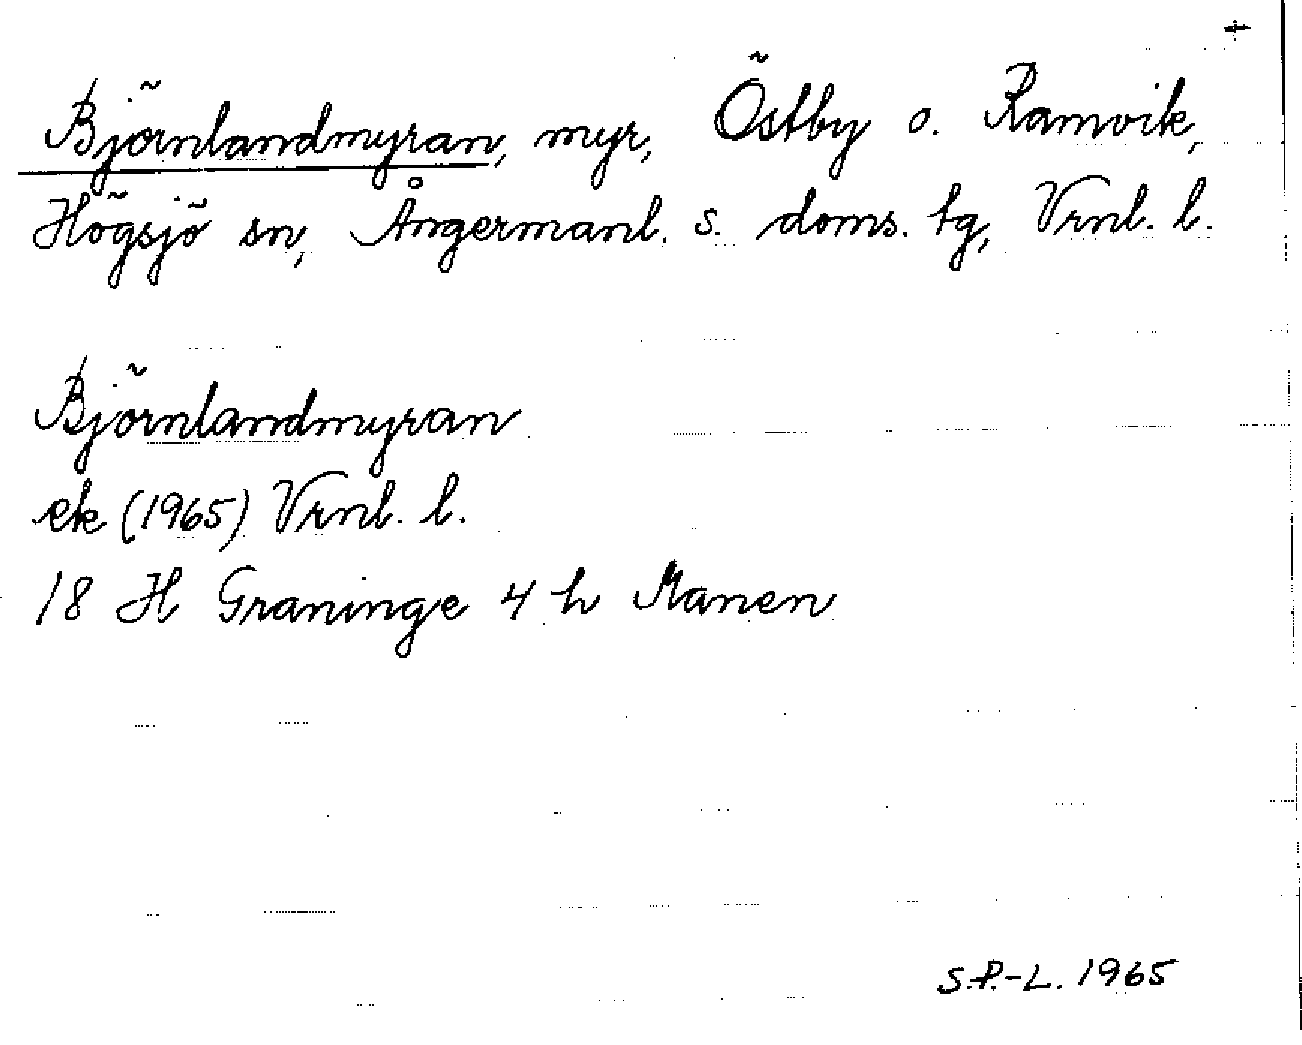 +
Björnlandmyran, myr, Östby o. Ramvik,
Högsjö sn, Ångermanl. s. doms. tg, Vrnl. l.
Björnlandmyran
ek (1965) Vrnl. l.
18 H Graninge 4 h Manen
S.P.-L. 1965